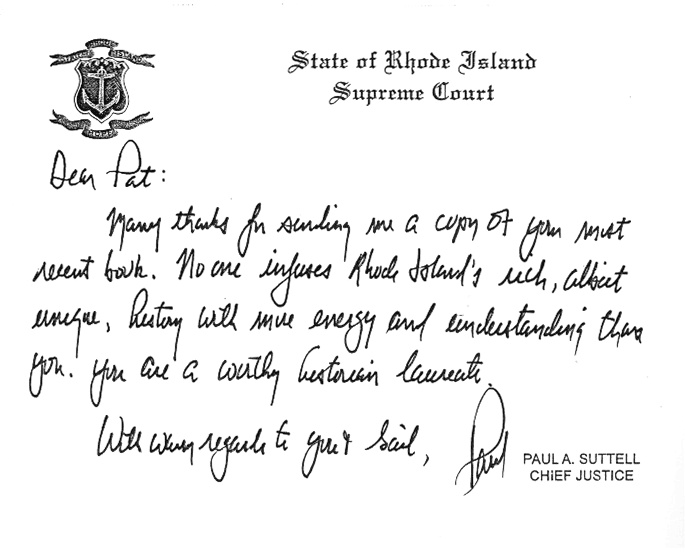 State of Rhode Island
Supreme Court
HOPE
Dear Pat:
Many thanks for sending me a copy of your most
recent book. No one infuses Rhode Island's rich, albeit
unique, history with more energy and understanding than
you. You are a worthy historian laureate.
With warm regards to you & Gail,
Paul
PAUL A. SUTTELL
CHIEF JUSTICE